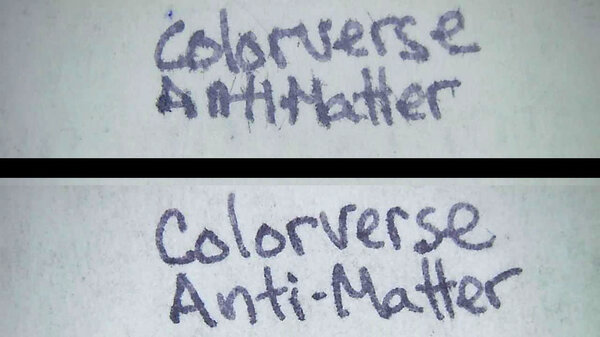 Colorverse
AntiMatter
Colorverse
Anti-Matter